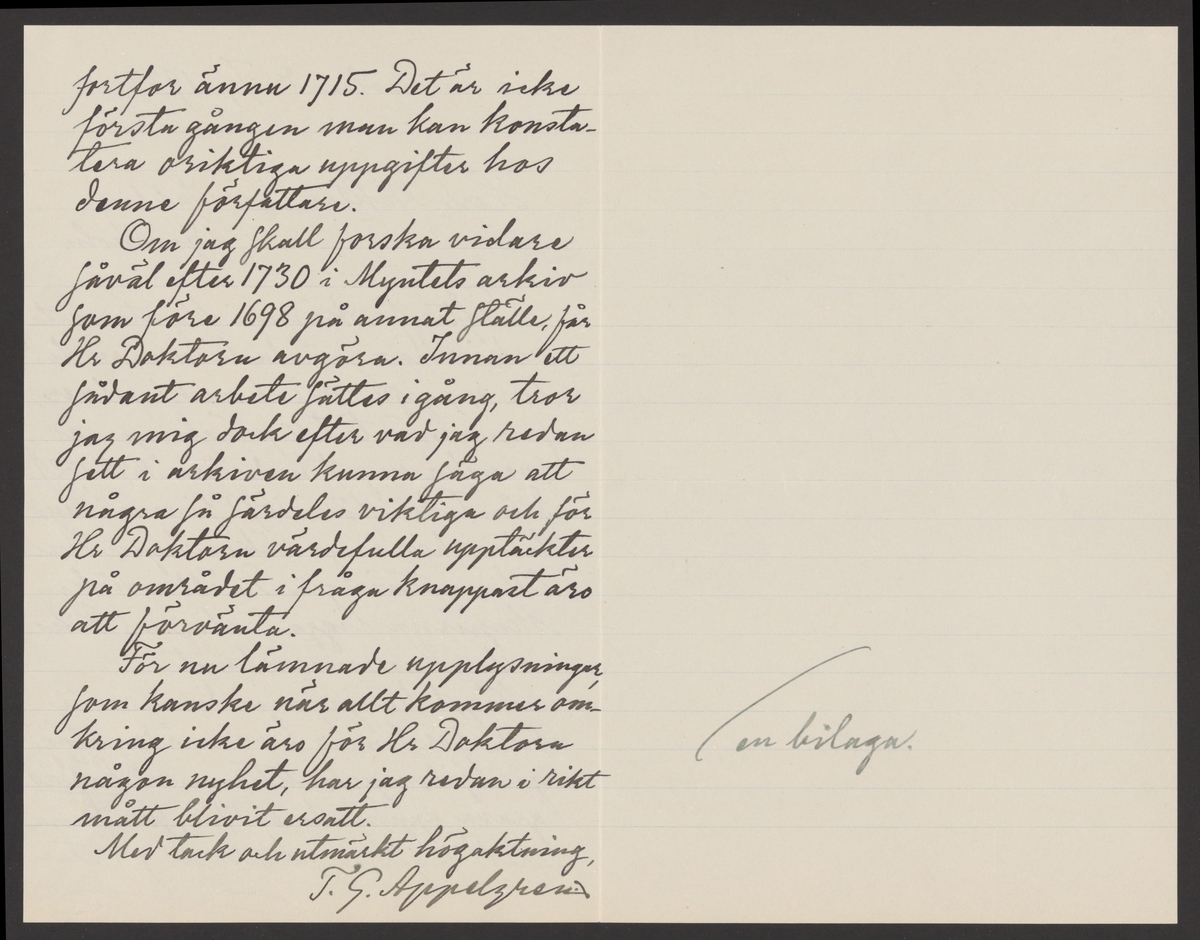 fortfor ännu 1715. Det är icke
första gången man kan konsta-
tera oriktiga uppgifter hos
denne författare.
Om jag skall forska vidare
såväl efter 1730 i Myntets arkiv
som före 1698 på annat ställe, får
Hr Doktorn avgöra. Innan ett
sådant arbete sättes i gång, tror
jag mig dock efter vad jag redan
sett i arkiven kunna säga att
några så särdeles viktiga och för
Hr Doktorn värdefulla upptäckter
på området i fråga knappast äro
att förvänta.
För nu lämnade upplysningar,
som kanske när allt kommer om-
kring icke äro för Hr Doktorn
någon nyhet, har jag redan i rikt
mått blivit ersatt.
Med tack och utmärkt högaktning,
T. G. Appelgren.
en bilaga.